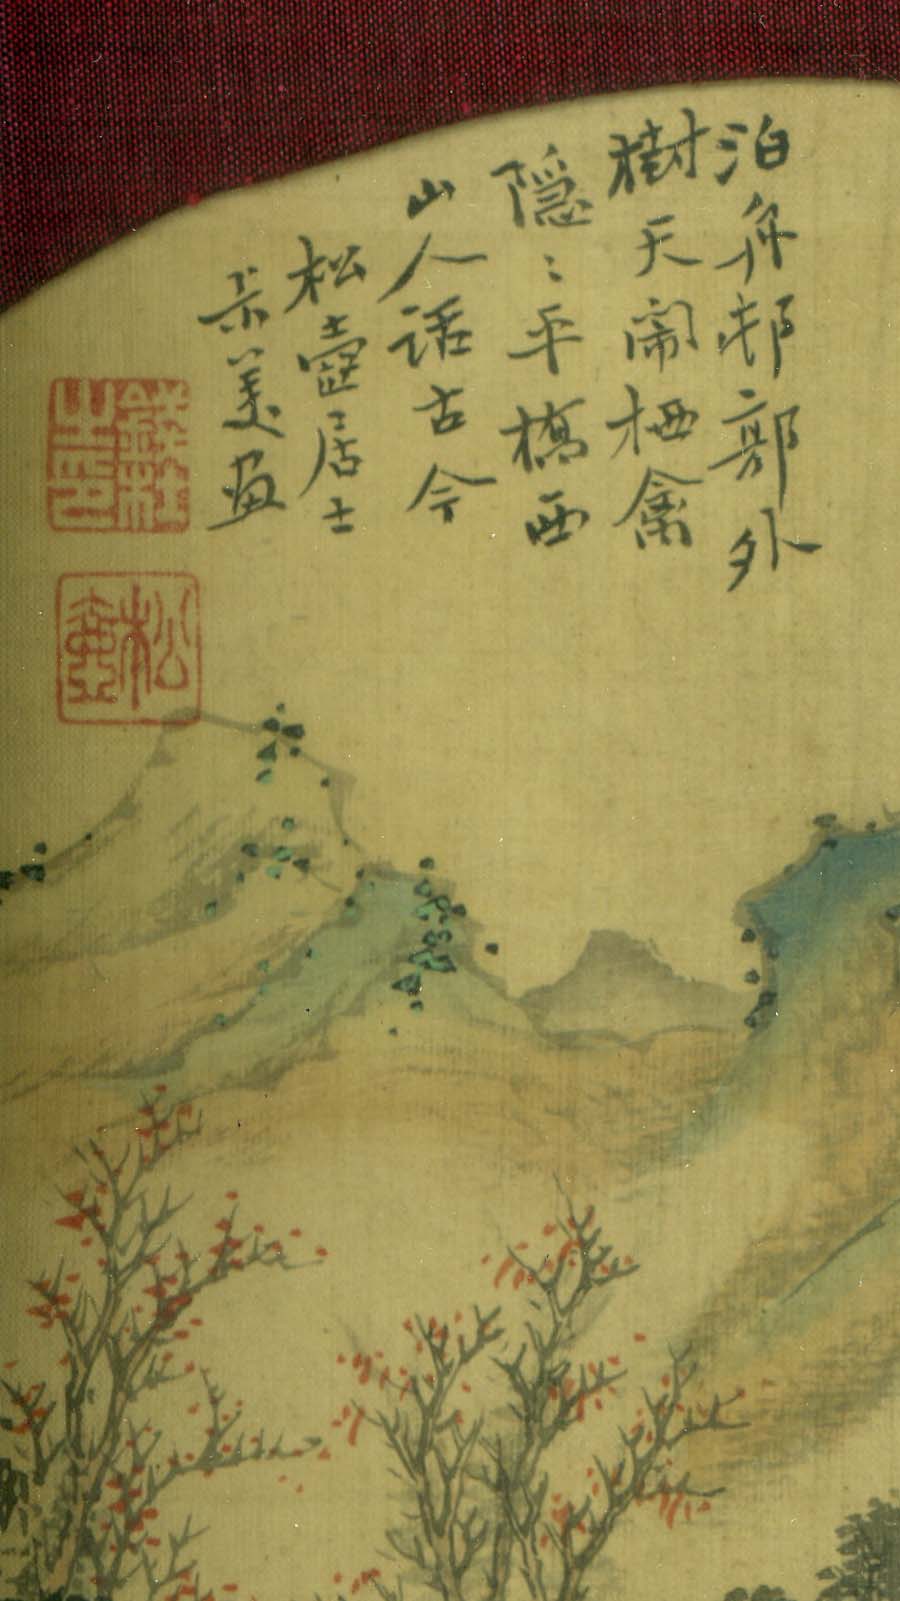 泊舟邨郭外
樹天鬧栖禽
隱〻平橋西
山人話古今
松壺居士
尗美畫
錢杜之印
松壺